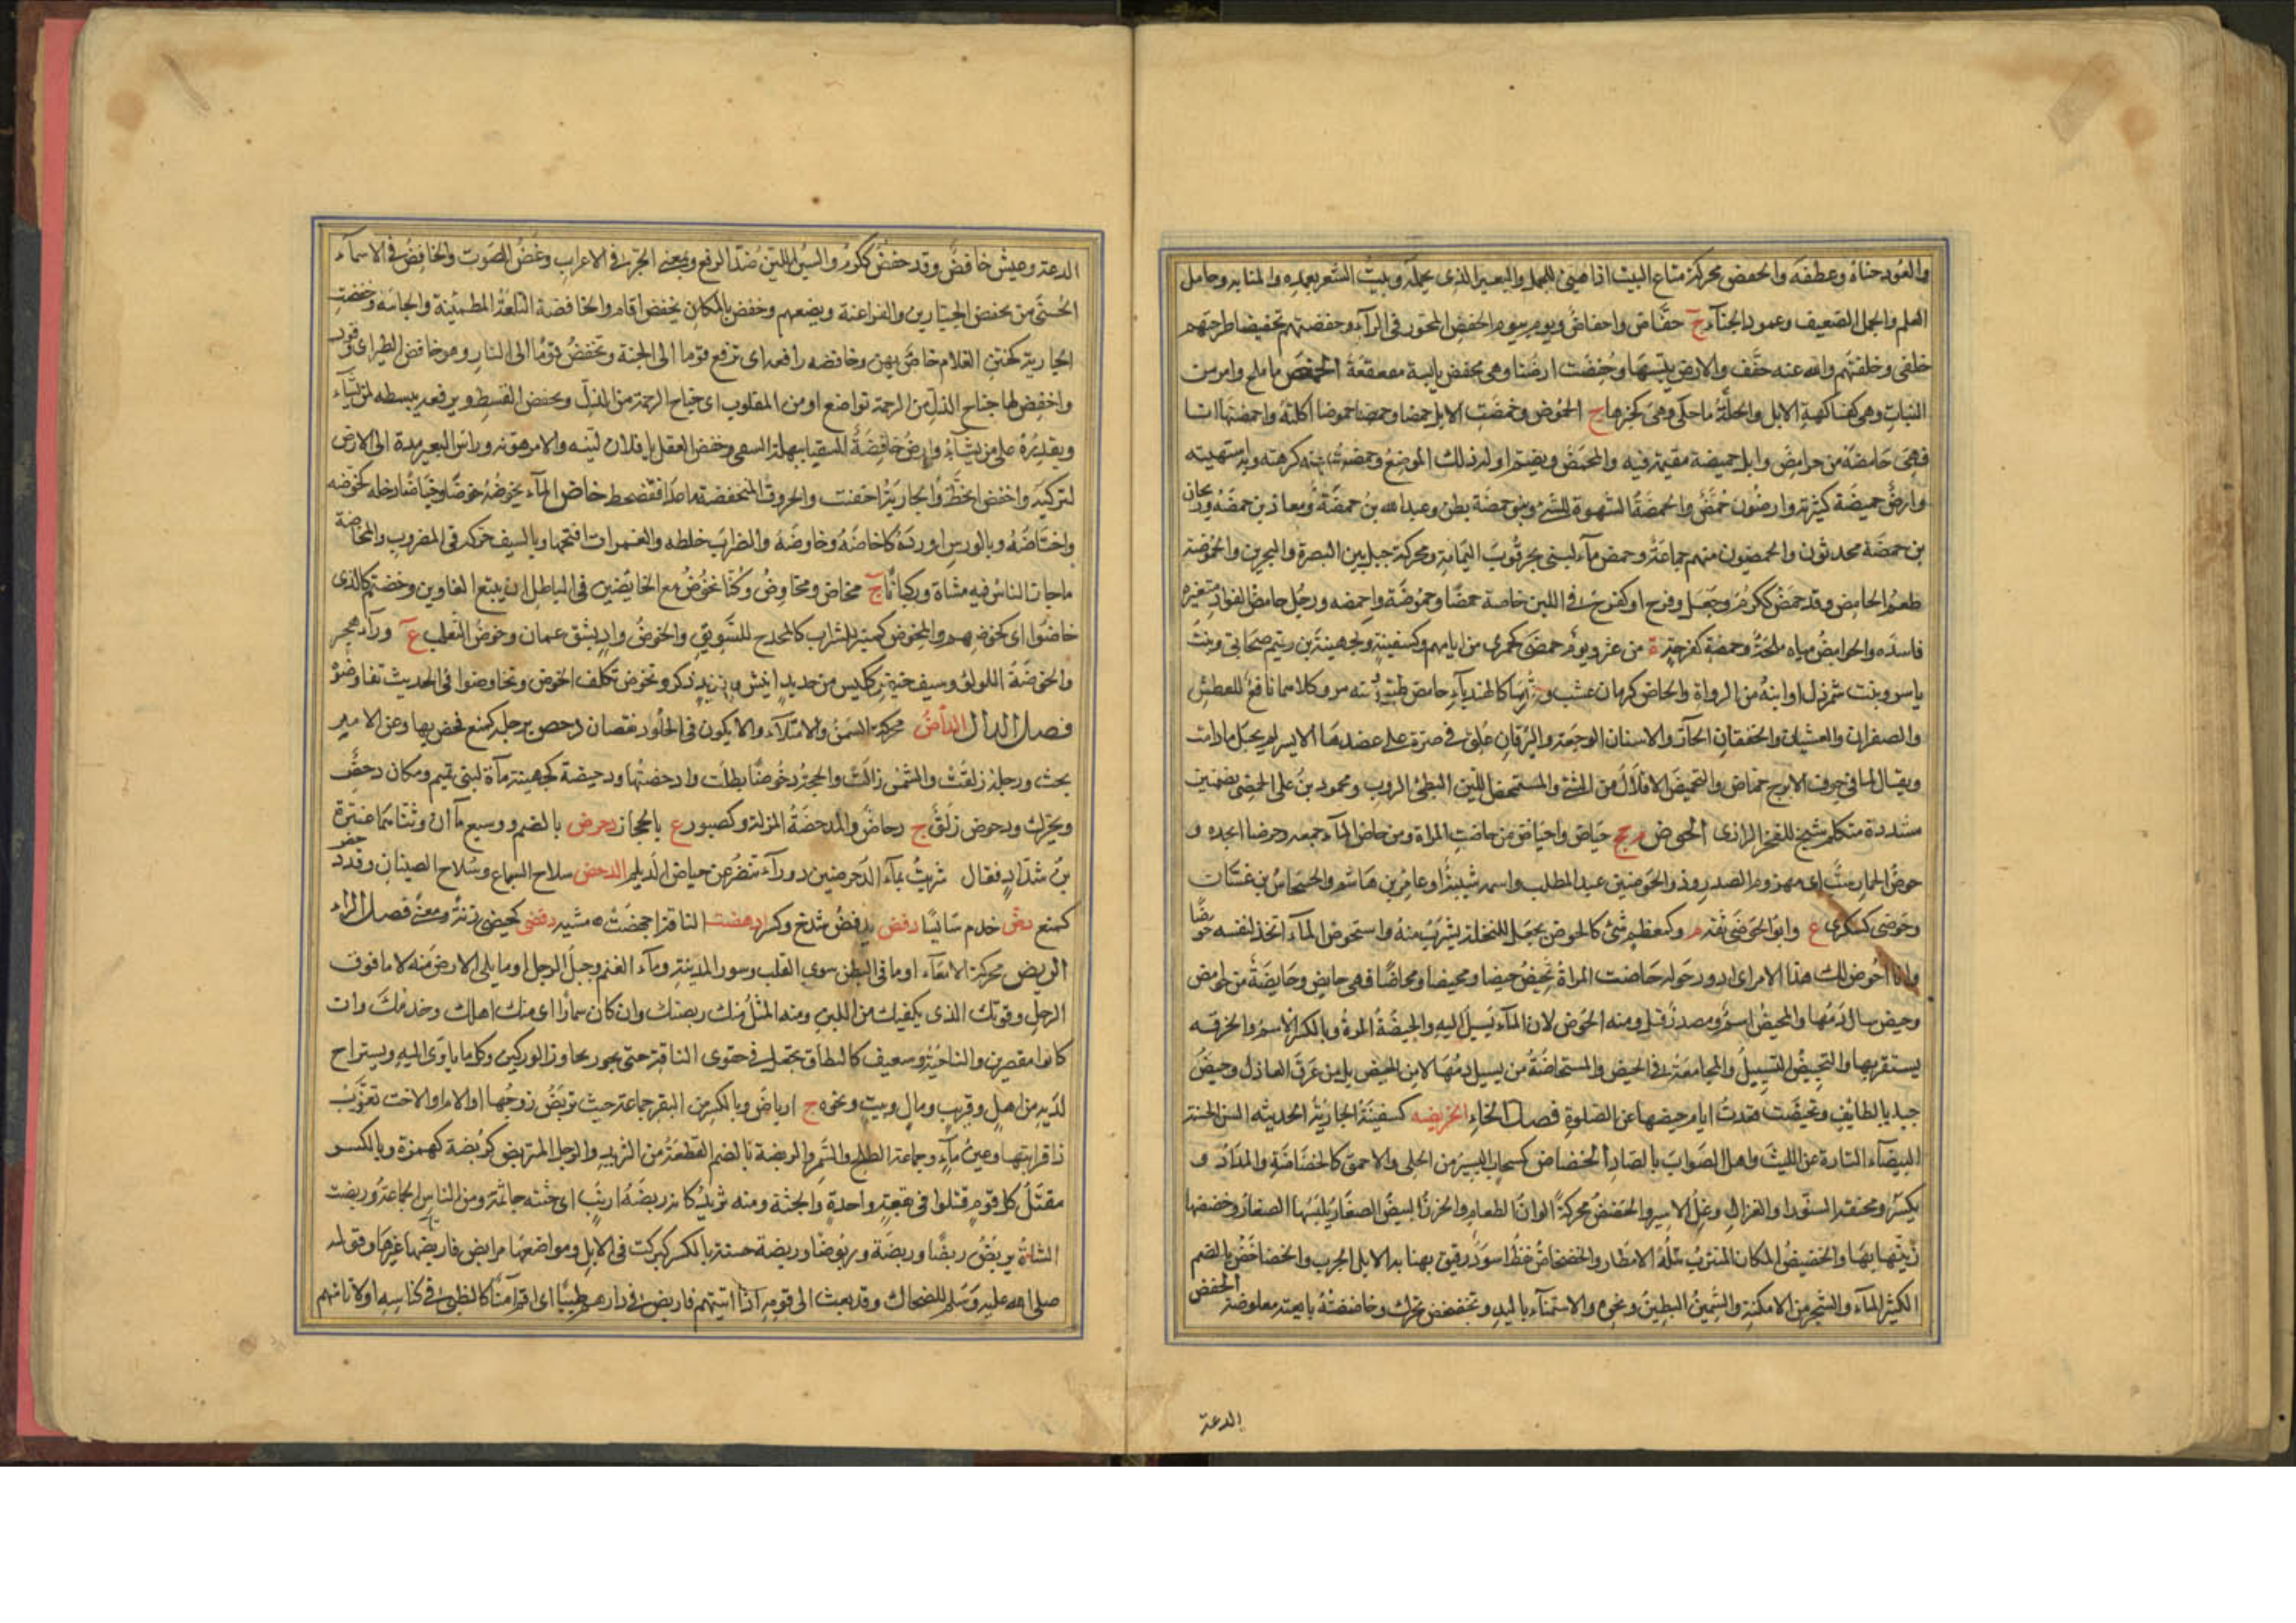 والعود حناه وعطفه والحفض محركة متاع البيت اذا هيئ للحمل والبعير الذى يحمله وبيت الشعر بعمده والمتابه وحامل
العلم والجمل الضعيف وعمود الخباء ج حفاض واحفاض ويوم بيوم الحفض المجور فى الراء وحفضتهم تحفيضا طرحتهم
خلفى وخلفتهم والله عنه خفف والارض يبسها وحفضت ارضنا وهى محفض يابسة مقعقعة الحمض ما ملح وامر من
النبات وهى كفاكهة الابل والخلة ما حلا وهى كخبزها ج الحموض وحمضت الابل حمضا وحموضا اكلته واحمضتها انا
فهى حامضة من حوامض وابل حمضية مقيمة فيه والمحمض ويضم اوله ذلك الموضع وحمضت عنه كرهته وبه اشتهيته
وارض حميضة كثيرته وارضون حمض والحمضة الشهوة للشئ وبنو حمضة بطن وعبد الله بن حمضة ومعاذ بن حمضة وريحان
بن حمضة محدثون والحمضيون منهم جماعة وحمض ماء لبنى قرب اليمامة ومحركة جبل بين البصرة والبحرين والحموضة
طعم الحامض وقد حمض ككرم وجعل وفرح او كفرح فى اللبن خاصة حمضا وحموضة واحمضه ورجل حامض الفؤاد متغيره
فاسده والحوامض مياه ملحة وحمضة كفرحة ة من عثر ويوم حمضى كجمزى من ايامهم وكسفينة وجهينة بن رقيم صحابى وبنت
ياسر وبنت شمرذل او ابنه من الرواة والحماض كرمان عشب ورقه كالهندباء حامض طيب ومنه مر وكلاهما نافع للعطش
والصفراء والغشيان والخفقان الحار والاسنان الوجعة واليرقان علق فى صرة على عضدها الايسر لم يحبل ما دامت
ويقال لما فى جوف الاترج حماض والتحميض الاقلال من الشئ والمستحمض اللبن البطئ الروب ومحمود بن على الحمضى بضمتين
مشددة متكلم شيخ للفخر الرازى الحوض م ج حياض واحياض من حاضت المراة ومن حاض الماء جمعه وحوضا اتخذه و
حوض الحمار سب اى مهزوم الصدر وذو الحوضين عبد المطلب واسمه شيبة او عامر بن هاشم والحسحاس بن غسان
وحوضى كسكرى ع وابو الحوضى ثقة م وكمعظم شئ كالحوض يجعل للنخلة يشرب منه واستحوض الماء اتخذ لنفسه حوضا
وانا احوض لك هذا الامر اى ادور حوله حاضت المراة تحيض حيضا ومحيضا ومحاضا فهى حايض وحايضة من حوايض
وحيض سال دمها والمحيض اسم ومصدر قيل ومنه الحوض لان الماء يسيل اليه والحيضة المرة وبالكسر الاسم والخرقة
يستثفر بها والتحييض التسييل والمجامعة فى الحيض والمستحاضة من يسيل دمها لا من الحيض بل من عرق العاذل وحيض
جبل بالطايف وتحيضت قعدت ايام حيضها عن الصلوة فصل الخاء الخريضه كسفينة الجارية الحديثه السن الحسنة
البيضاء التارة عن الليث ولعل الصواب بالصاد الخضاض كسحاب اليسير من الحلى والاحمق كالخضاضة والمداد و
يكسر ومخنقة السنور او الغزال وغل الاسير والخضض محركة الوان الطعام والخرز البيض الصغار يلبسها الصغار وخضضها
زينها بها والخضيض المكان المتترب تبله الامطار والخضخاض نفط اسود رقيق يهنا به الابل الجرب والخضاخض بالضم
الكثير الماء والشجر من الامكنة والسمين البطين ونحوه والاستمناء باليد وتخضخض تحرك وخاضضته بايعته معاوضة الخفض
الدعة
الدعة وعيش خافض وقد خفض ككرم والسير اللين ضد الرفع وبمعنى الجر فى الاعراب وغض الصوت والخافض فى الاسماء
الحسنى من يخفض الجبارين والفراعنة ويضعهم وخفض بالمكان يخفض اقام والخافضة التلعة المطمئنة والخاتنة وخفضت
الجارية كختن الغلام خاص بهن وخافضه رافعه اى ترفع قوما الى الجنة وتخفض قوما الى النار وهو خافض الطير اى وقور
واخفض لها جناح الذل من الرحمة تواضع او من المقلوب اى جناح الرحمة من الذل ويخفض القسط ويرفعه يبسطه لمن يشاء
ويقدره على من يشاء وارض خافضة السقيا سهلة السقى وخفض القول يا فلان لينه والامر هونه وراس البعير مده الى الارض
لتركبه واختفض انحط والجارية اختتنت والحروف المنخفضة ما عدا قغضخطصظ خاض الماء يخوضه خوضا وخياضا دخله كخوضه
واختاضه وبالفرس اورده كاخاضه وخاوضه والشراب خلطه والغمرات اقتحمها وبالسيف حركه فى المضروب والمخاضة
ما جاز الناس فيه مشاة وركبانا ج مخاض ومخاوض وكنا نخوض مع الخايضين فى الباطل اى نتبع الغاوين وخضتم كالذى
خاضوا اى كخوضهم والمخوض كمنبر للشراب كالمجدح للسويق والخوض واد بشق عمان وخوض الثعلب ع وراء هجر
والخوضة اللؤلؤة وسيف خيض ككيس من حديد انيث وحديد ذكر وتخوض تكلف الخوض وتخاوضوا فى الحديث تفاوضوا
فصل الدال الدأض محركة السمن والامتلاء والا يكون فى الجلود نقصان دحض برجله كمنع فحص بها وعن الامر
بحث ورجله زلقت والشمس زالت والحجة دحوضا بطلت وادحضتها ودحيضة كجهينة ماءة لبنى تميم ومكان دحض
ويحرك ودحوض زلق ج دحاض والمدحضة المزلة وكصبور ع بالحجاز دحرض بالضم ووسيع ماءان وثناهما عنترة
بن شداد فقال شربت بماء الدحرضين زوراء تنفر عن حياض الديلم الدحض سلاح السباع وسلاح الصبيان وقد دحض
كمنع دضض خدم سائسا دفض يدفض شدخ وكسر ادهضت الناقة اجهضت ه مشيه ديضى كحيضى زنة ومعنى فصل الراء
الربض محركة الامعاء او ما فى البطن سوى القلب وسور المدينة وماوى الغنم وحبل الرحل او ما يلى الارض منه لا ما فوق
الرحل وقوتك الذى يكفيك من اللبن ومنه المثل منك ربضك وان كان سمارا اى منك اهلك وخدمك وان
كانوا مقصرين والناحية وسفيف كالنطاق يجعل فى حقوى الناقة حتى يجاوز الوركين وكل ما ياوى اليه ويستراح
لديه من اهل وقريب ومال وبيت ونحوه ج ارباض وبالكسر من البقر جماعته حيث تربض زوجها او الام او الاخت تعزب
ذا قرابتها وعين ماء وجماعة الطلح والسمر والربضة بالضم القطعة من الثريد والرجل المتربض كربضة كهمزة وبالكسر
مقتل كل قوم قتلوا فى بقعة واحدة والجثة ومنه ثريد كانه ربضة ارنب اى جثته جاثمة ومن الناس الجماعة وربضت
الشاة تربض ربضا وربضة وربوضا وربضة حسنة بالكسر كبركت فى الابل ومواضعها مرابض واربضها غيرها وقوله
صلى الله عليه وسلم للضحاك وقد بعث الى قومه اذا اتيتهم فاربض فى دارهم ظبيا اى اقم آمنا كالظبى فى كناسه او لا تامنهم